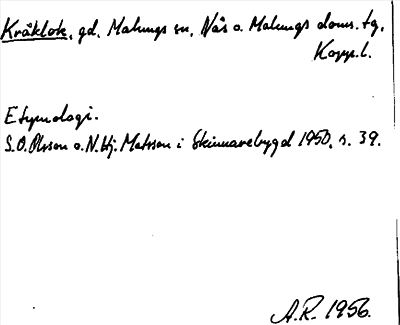 Kråklok, gd. Malungs sn, Nås o. Malungs doms. tg,
Kopp. l.
Etymologi.
S.O. Olsson o. N. Hj. Matsson i Skinnarebygd 1950, s. 39.
A.R. 1956.